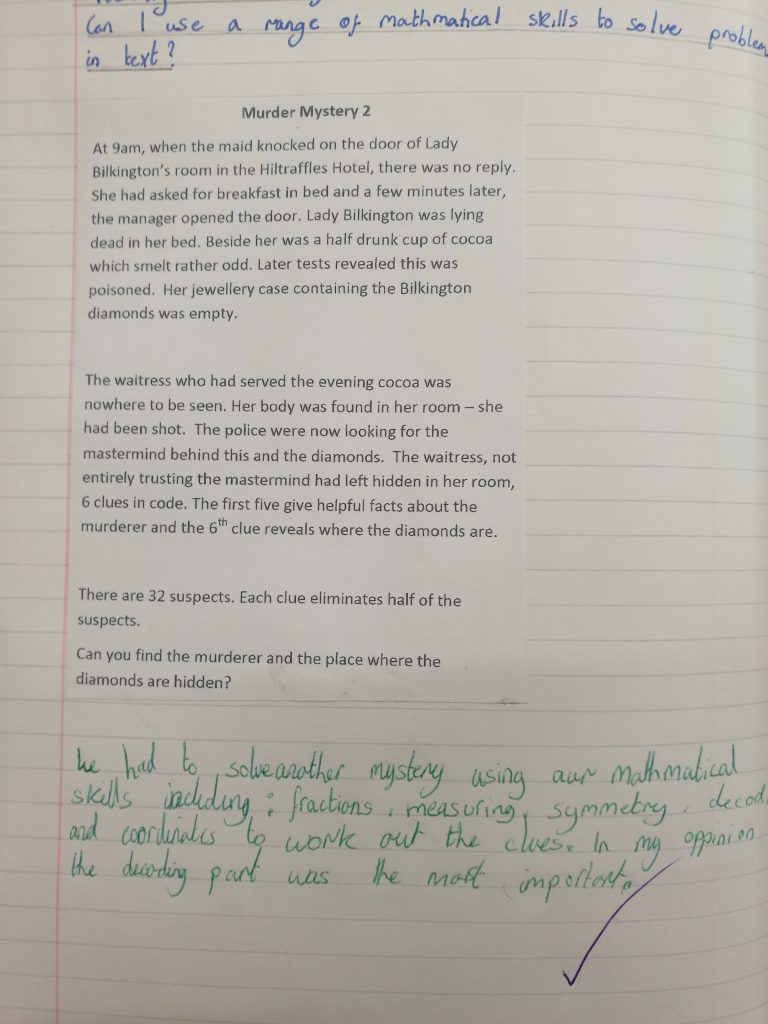 Can I use a range of mathmatical skills to solve problem
in text?
Murder Mystery 2
At 9am, when the maid knocked on the door of Lady
Bilkington's room in the Hiltraffles Hotel, there was no reply.
She had asked for breakfast in bed and a few minutes later,
the manager opened the door. Lady Bilkington was lying
dead in her bed. Beside her was a half drunk cup of cocoa
which smelt rather odd. Later tests revealed this was
poisoned. Her jewellery case containing the Bilkington
diamonds was empty.
The waitress who had served the evening cocoa was
nowhere to be seen. Her body was found in her room – she
had been shot. The police were now looking for the
mastermind behind this and the diamonds. The waitress, not
entirely trusting the mastermind had left hidden in her room,
6 clues in code. The first five give helpful facts about the
murderer and the 6th clue reveals where the diamonds are.
There are 32 suspects. Each clue eliminates half of the
suspects.
Can you find the murderer and the place where the
diamonds are hidden?
We had to solve another mystery using aur mathmatical
skills including: fractions, measuring, symmetry, decod
and coordinates to work out the clues. In my oppinion
the decoding part was the most important.